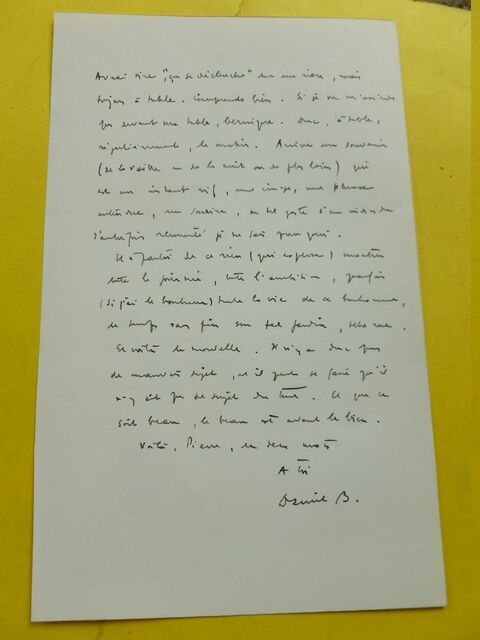 A vrai dire, "ça se déclenche" sur un rien, mais
toujours à table. Comprends bien. Si je ne m'assieds
pas devant ma table, bernique. Donc, à table,
régulièrement, le matin. Arrive un souvenir
(de la veille ou de la nuit ou de plus loin) qui
est un instant vif, une image, une phrase
entendue, un sourire, ou tel geste d'un individu
d'autrefois remonté je ne sais pourquoi.
Et à partir de ce rien (qui explose) montre
toute la journée, toute l'ambition, parfois
(si j'ai le bonheur) toute la vie de ce bonhomme,
le temps sans fin sur tel jardin, telle rue.
Et voilà la nouvelle. Il n'y a donc pas
de mauvais sujet, et il peut se faire qu'il
n'y ait pas de sujet du tout. Et que ce
soit beau, le beau est avant le bien.
Voilà, Pierre, en deux mots
A toi
Daniel B.